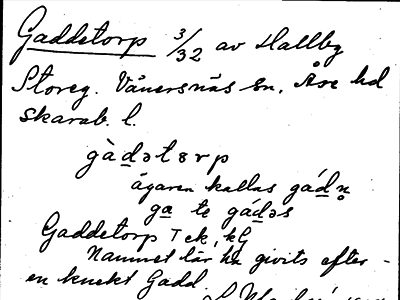 Gaddetorp 3/32 av Hallby
Storeg. Vånersnäs sn, Åse hd
Skarab. l.
gàdətɛrp
ägaren kallas gádn̥
ga te gádəs
Gaddetorp Tek, kG
Namnet lär ha givits efter
en knekt Gadd.